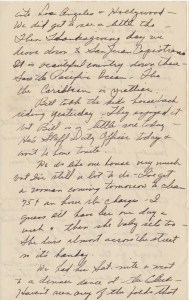 into Los Angeles & Hollywood -
We did get a see a little tho -
Then Thanksgiving day we
drove down to San Juan Capistrano
It is beautiful country down there -
Saw the Pacific Ocean - Tho
the Caribbean is prettier.
Bill took the kids horse back
riding yesterday - They enjoyed it
but Bill is a little sore today
He's Staff Duty Officer today &
won't be home tonite
We do like our house very much
but I'm still a lot to do - I've got
a woman coming tomorrow to clean
75¢ an hour she charges - I
guess I'll have her one day a
week & then she baby sits too -
She lives almost across the street
so its handy
We had his Sat. nite & went
to a dinner dance at the Club -
Haven't seen any of the folks that